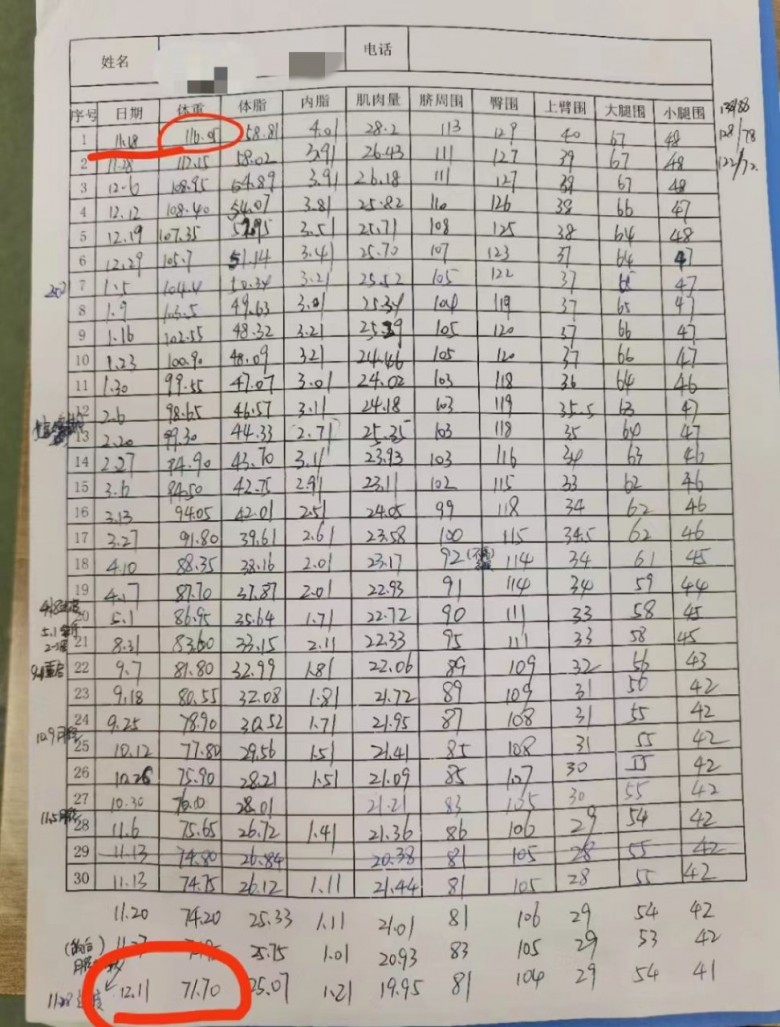 姓名 电话
序号 日期 体重 体脂 内脂 肌肉量 脐周围 臀围 上臂围 大腿围 小腿围
1 11.18 58.81 4.01 28.2 113 129 40 67 48
128/78
2 11.28 112.15 58.02 3.91 26.43 111 127 39 67 48
122/72
3 12.6 108.95 54.89 3.91 26.18 111 127 39 67 48
4 12.12 108.40 54.07 3.81 25.82 110 126 38 66 47
5 12.19 107.35 3.51 25.71 108 125 38 64 48
6 12.29 105.7 51.14 3.41 25.70 107 123 37 64 47
7 1.5 104.4 50.34 3.21 25.52 105 122 37 47
8 1.9 103.5 49.63 3.01 25.34 104 119 37 65 47
9 1.16 102.55 48.32 3.21 25.39 105 120 37 66 47
10 1.23 100.90 48.09 3.21 24.46 105 120 37 66 47
11 1.30 99.55 47.07 3.01 24.02 103 118 36 64 46
12 2.6 98.65 46.57 3.11 24.18 103 119 35.5 63 47
13 2.20 99.30 44.33 2.71 25.35 103 118 35 64 47
14 2.27 94.90 43.70 3.11 23.93 103 116 34 63 46
15 3.6 94.50 42.75 2.91 23.11 102 115 33 62 46
16 3.13 94.05 42.01 2.51 24.05 99 118 34 62 46
17 3.27 91.80 39.61 2.61 23.58 100 115 34.5 62 46
18 4.10 88.35 38.16 2.01 23.17 92 114 34 61 45
19 4.17 87.70 37.87 2.01 22.93 91 114 34 59 44
20 5.1 86.95 35.64 1.71 22.72 90 111 33 58 45
21 8.31 83.60 33.15 2.11 22.33 95 111 33 58 45
22 9.7 81.80 32.99 1.81 22.06 89 109 32 56 43
23 9.18 80.55 32.08 1.81 21.72 89 109 31 56 42
24 9.25 78.90 30.52 1.71 21.95 87 108 31 55 42
25 10.12 77.80 29.56 1.51 21.41 85 108 31 55 42
26 10.26 75.90 28.21 1.51 21.09 85 107 30 55 42
27 10.30 76.10 28.01 21.21 83 105 30 55 42
28 11.6 75.65 26.72 1.41 21.36 86 106 29 54 42
29 11.13 74.80 26.84 20.38 81 105 28 55 42
30 11.13 74.75 26.12 1.11 21.44 81 105 28 55 42
11.20 74.20 25.33 1.11 21.01 81 106 29 54 42
11.27 25.75 1.01 20.93 83 105 29 53 42
12.11 71.70 25.07 1.21 19.95 81 104 29 54 41